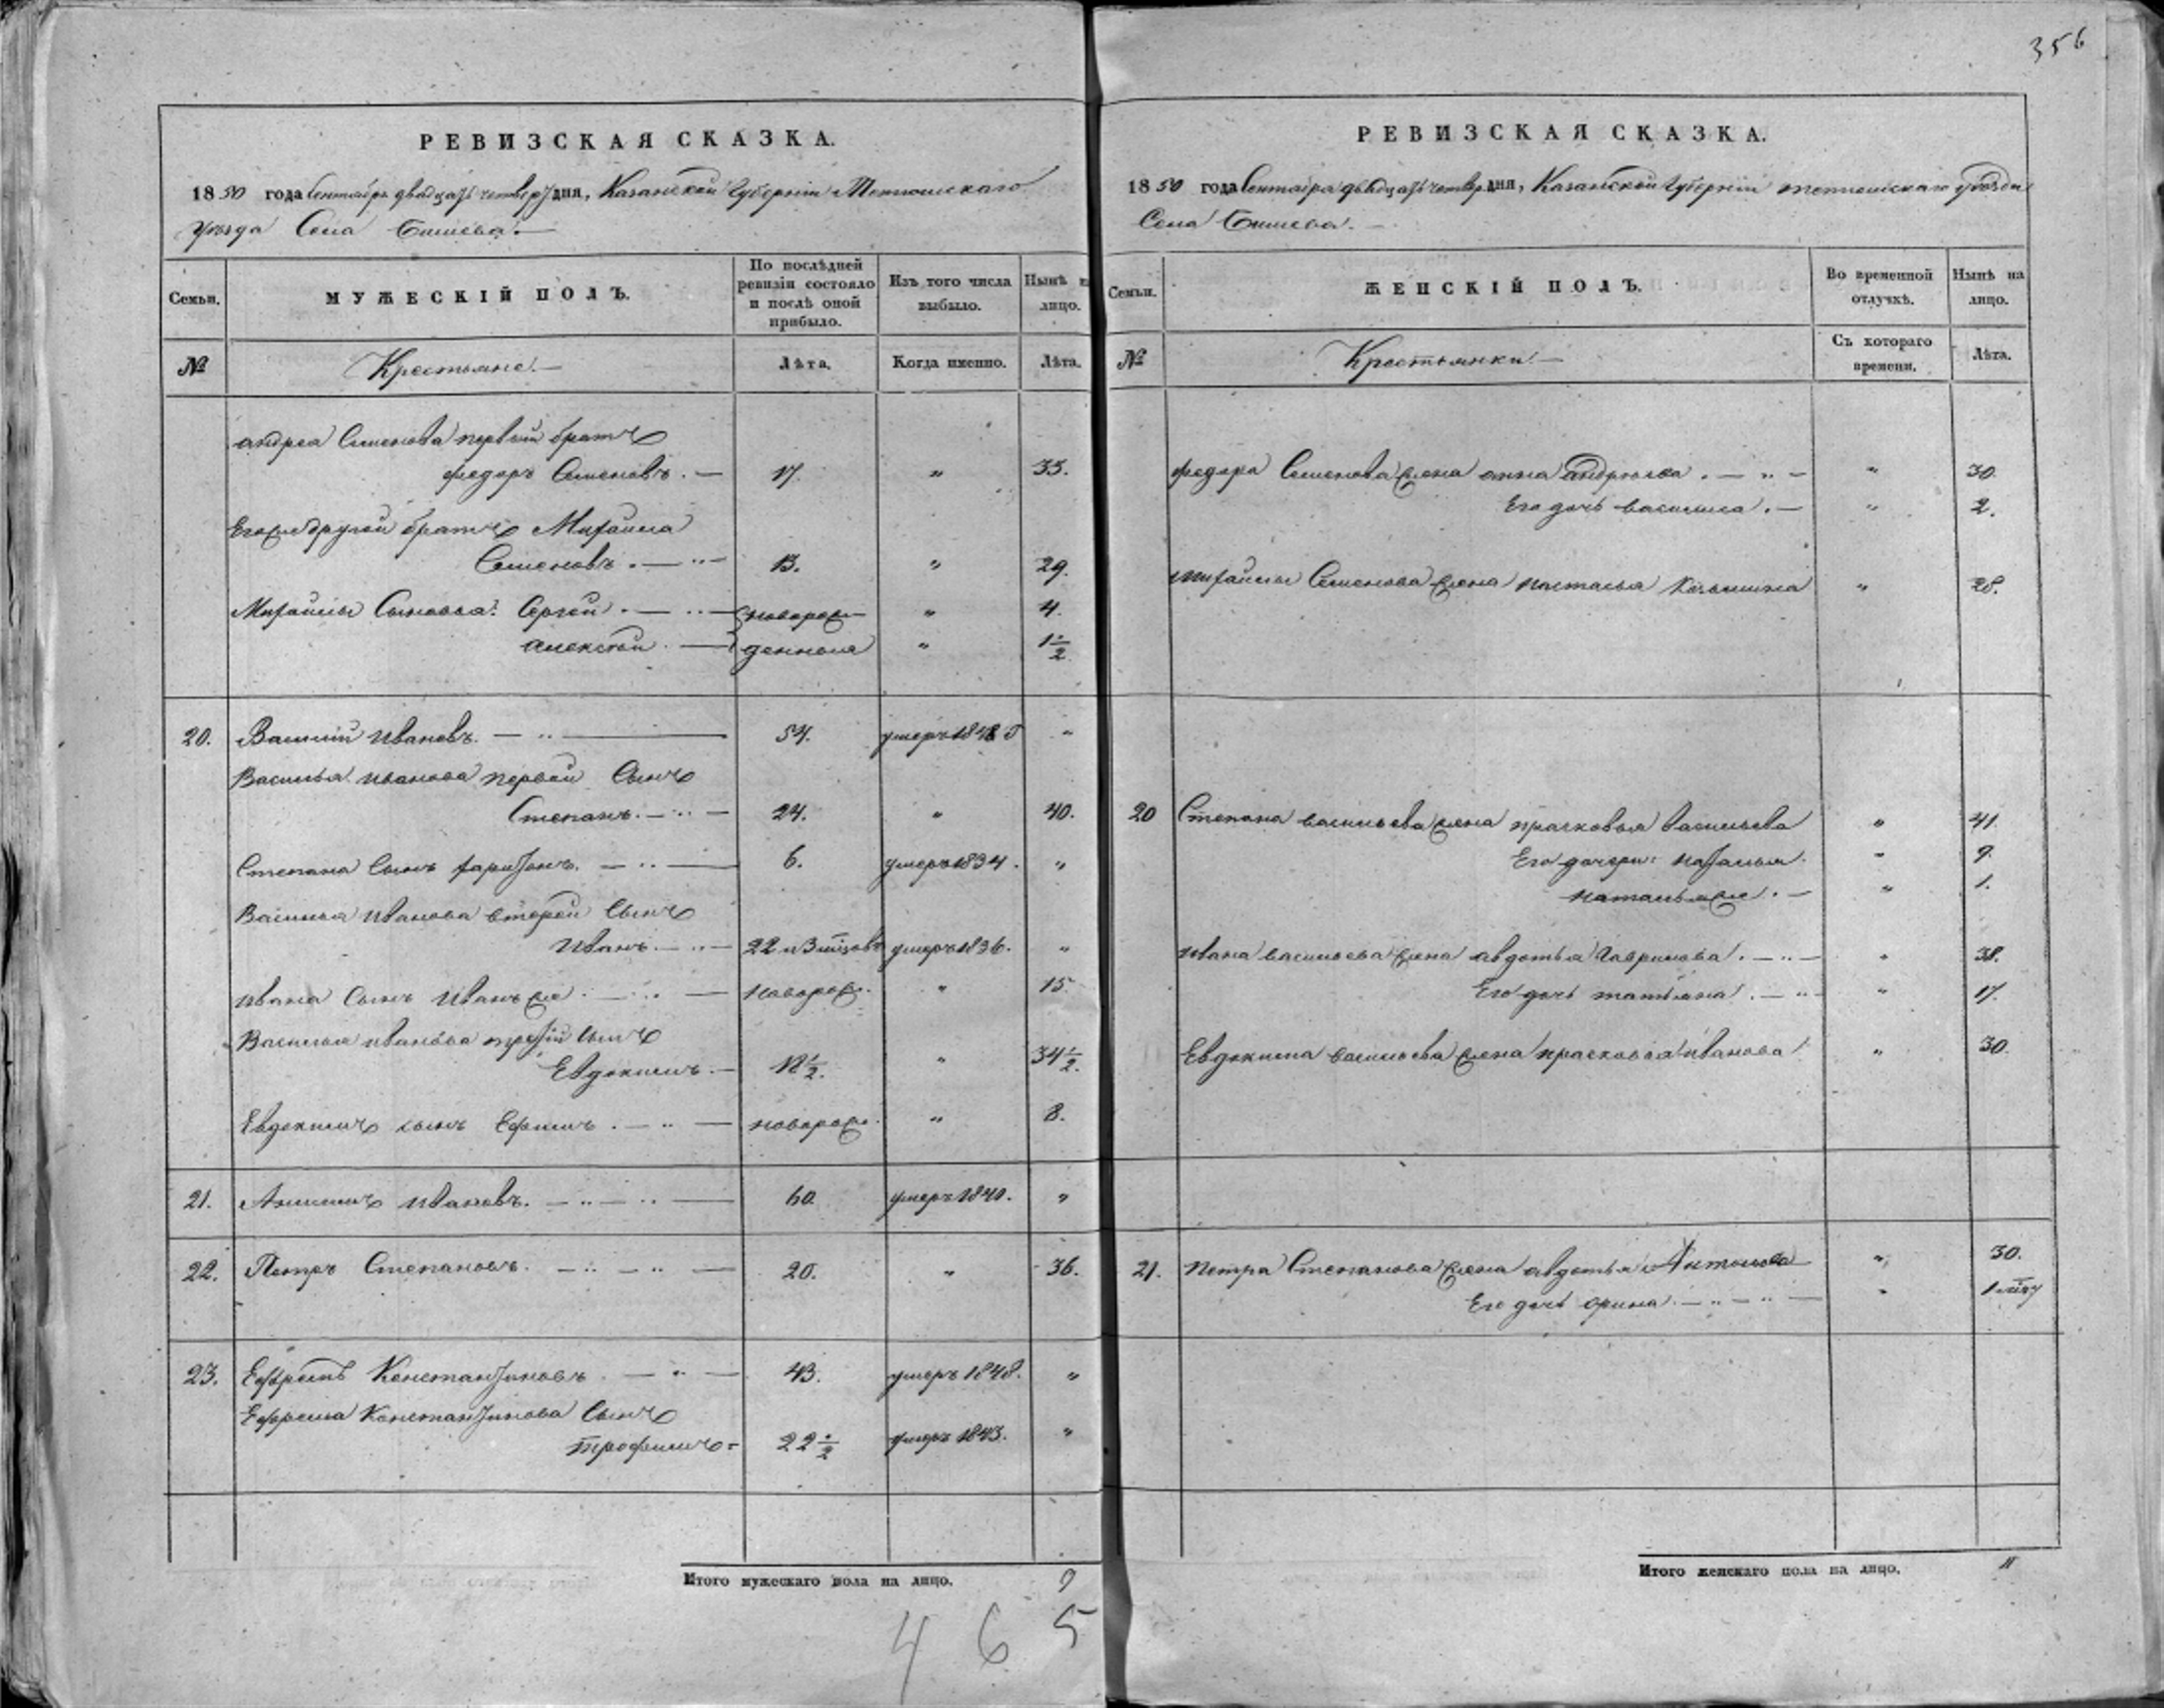 356
РЕВИЗСКАЯ СКАЗКА.
1850 года Сентября двадцать четверт дня, Казанской Губернии Тетюшскаго
уезда Села
Семьи.
МУЖЕСКІЙ ПОЛЪ.
По послѣдней ревизіи состояло и послѣ оной прибыло.
Изъ того числа выбыло.
Нынѣ на лицо.
№
Крестьяне.
Лѣта.
Когда именно.
Лѣта.
Андрея Семенова первый братъ
Федоръ Семеновъ. — 17. " 33.
Егоже другой братъ Михайла
Семеновъ. — 13. " 29.
Михайлы Сыновья: Сергей — новорож " 4.
Алексей. — денныя " 1 1/2
20. Василий Ивановъ. — 54. умеръ 1848 "
Василья Иванова первой Сынъ
Степанъ. — 24. " 40.
Степана Сынъ Ларионъ. — 6. умеръ 1834. "
Василья Иванова второй Сынъ
Иванъ. — 22 и 3 умеръ 1836. "
Ивана Сынъ Иванъ же — новорож. " 15
Василья Иванова третий Сынъ
Евдокимъ. — 18 1/2. " 34 1/2.
Евдокимъ сынъ Ефимъ. — новорож. " 8.
21. Анисимъ Ивановъ. — 60. умеръ 1840. "
22. Петръ Степановъ. — 20. " 36.
23. Ефремъ Константиновъ. — 43. умеръ 1848. "
Ефрема Константинова Сынъ
Трофимъ — 22 1/2 умеръ 1843. "
Итого мужескаго пола на лицо. 9
4 6 5
РЕВИЗСКАЯ СКАЗКА.
1850 года Сентября двадцать четвер дня, Казанской Губернии Тетюшскаго уезда
Села
Семьи.
ЖЕНСКІЙ ПОЛЪ.
Во временной отлучкѣ.
Нынѣ на лицо.
№
Крестьянки. —
Съ котораго времени.
Лѣта.
Федора Семенова жена Анна Андреева. — " 30.
Его дочь Василиса. — " 2.
Михайлы Семенова жена Настасья Козьмина " 28.
20 Степана Васильева жена Прасковья Васильева " 41.
Его дочери: Наталья " 9.
Наталья же. — " 1.
Ивана Васильева жена Авдотья Гаврилова. — " 38.
Его дочь Татьяна. — " 17.
Евдокима Васильева жена Прасковья Иванова " 30.
21. Петра Степанова жена Авдотья Антонова " 30.
Его дочь Орина. — "
Итого женскаго пола на лицо. 11